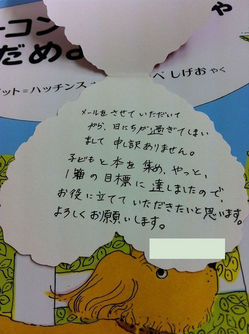 ーコン
や
だめよ
ット=ハッチンス
べ しげお やく
メールをさせていただいて
から、日にちが過ぎてしまい
まして申し訳ありません。
子どもと本を集め、やっと、
1箱の目標に達しましたので、
お役に立てていただきたいと思います。
よろしくお願いします。